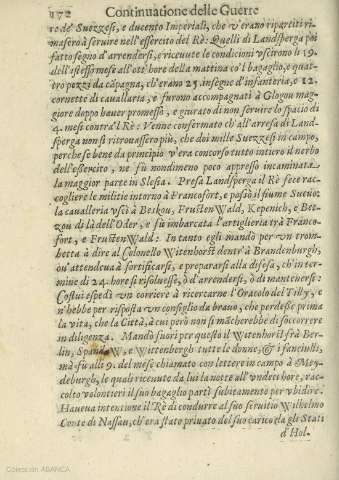 172 Continuatione delle Guerre
ro de' Suezzesi, e ducento Imperiali, che v'erano ripartiti ri-
masero à seruire nell'essercito del Rè: Quelli di Landsperga poi
fatto segno d'arrendersi, e riceuute le condicioni vscirono li 19.
dell'istesso mese all'ott' hore della mattina co'l bagaglio, e quat-
tro pezzi da cāpagna, ch'erano 25. insegne d'infanteria, e 12.
cornette di cauallaria, e furono accompagnati à Glogau mag-
giore doppo hauer promesso, e giurato di non seruire lo spacio di
4. mesi contra'l Rè: Venne confermato ch'all'arresa di Land-
sperga non si ritrouasse più, che doi mille Suezzesi in campo,
perche se bene da principio v'era concorso tutto intiero il nerbo
dell'essercito, ne fù nondimeno poco appresso incaminata
la maggior parte in Slesia. Presa Landsperga il Rè fece rac-
cogliere le militie intorno à Francofort, e possò il fiume Sueuo:
la cauallaria vscì à Beskou, FrustenWald, Kepenich, e Bet-
zou di là dell'Oder, e fù imbarcata l'artiglieria trà Franco-
fort, e FrustenWald: In tanto egli mandò per vn trom-
betta à dire al Colonello Witenhorst dentr'à Brandenburgh,
ou'attendeua à fortificarsi, e prepararsi alla difesa, ch'in ter-
mine di 24. hore si risoluesse, ò d'arrendersi, ò di mantenerse:
Costui espedì vn corriere à ricercarne l'Oracolo del Tilly, e
n'hebbe per risposta vn consiglio da brauo, che perdesse prima
la vita, che la Città, à cui però non si mācherebbe di soccorrere
in diligenza. Mandò fuori per questo il Witenhorst frà Ber-
lin, SpandaW, e Wittenbergh tutte le donne, & i fanciulli,
mà fù alli 9. del mese chiamato con lettere in campo à Mey-
deburgh, le quali riceuute da lui la notte all'vndeci hore, rac-
colto volontieri il suo bagaglio partì subitamente per vbidire.
Haueua intentione il Rè di condurre al suo seruitio Wilhelmo
Conte di Nassau, ch'era stato priuato del suo carico da gli Stati
d'Hol-
Colección ABANCA